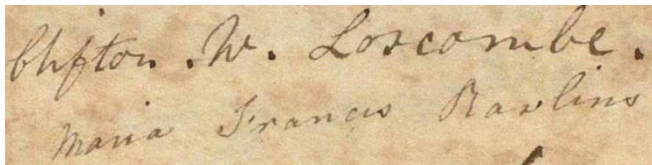 Clifton. W. Loscombe.
Maria Francis Rawlins